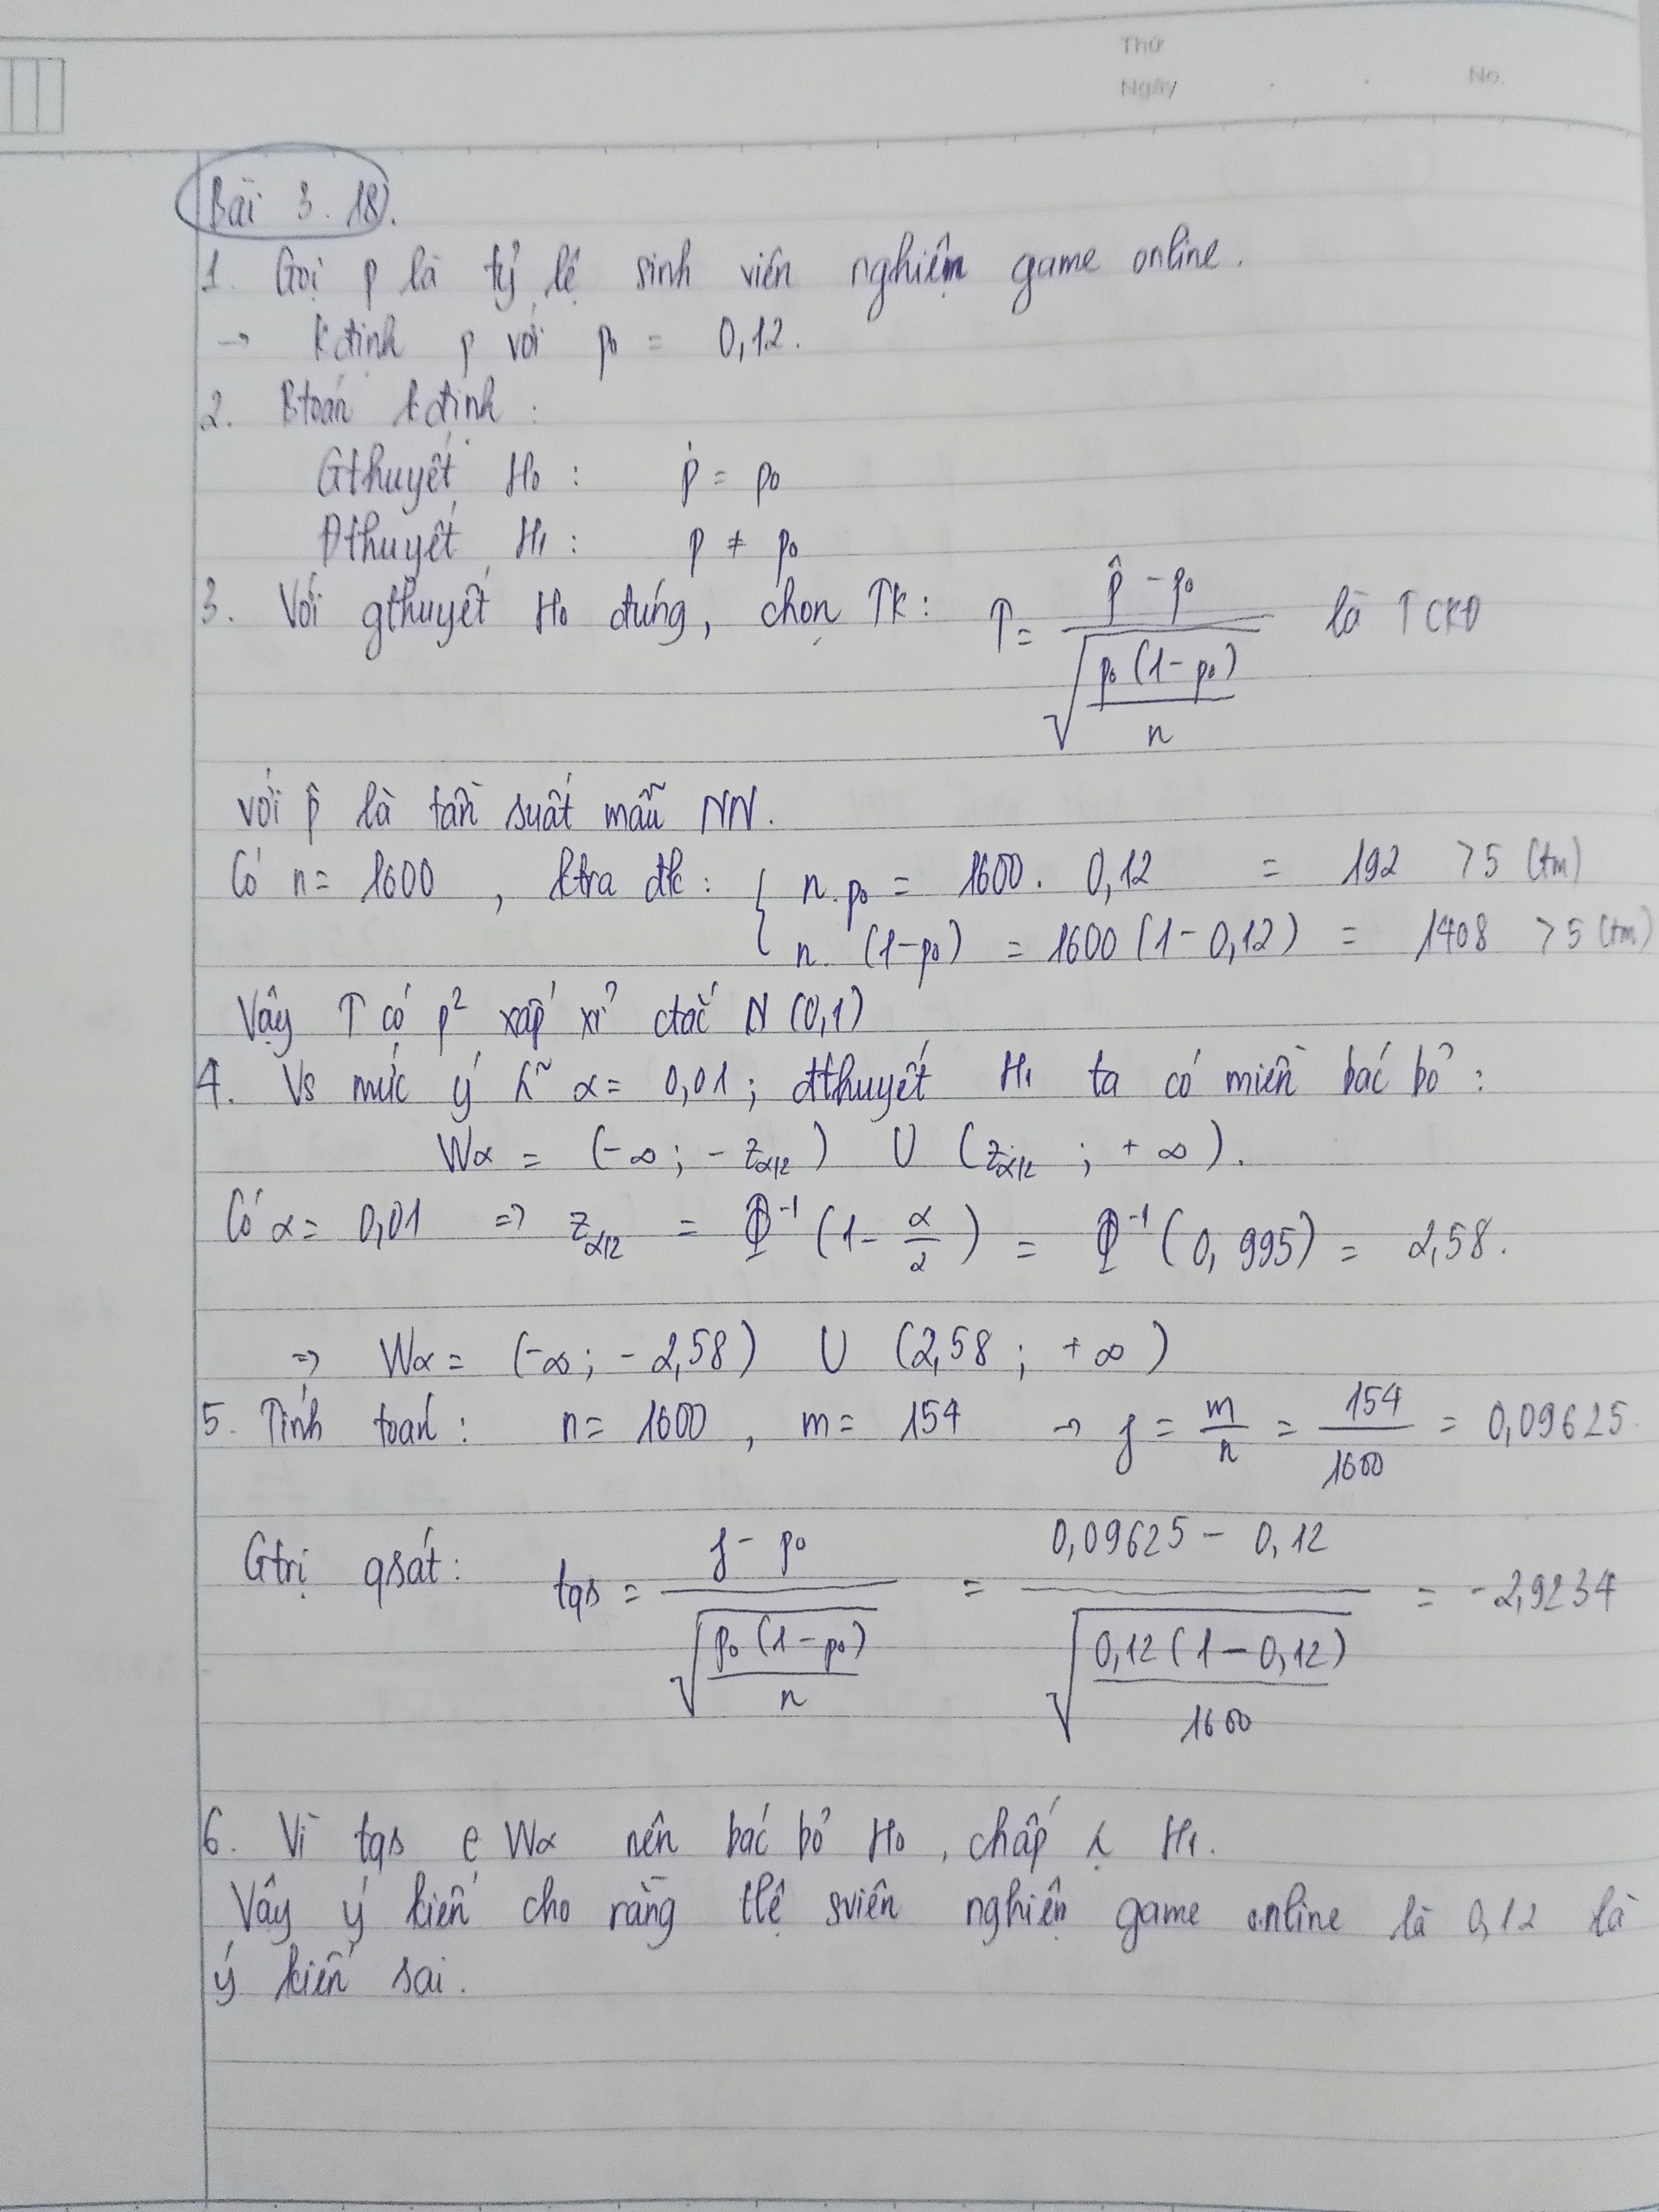 Thứ
Ngày . . No.
Bài 3.18.
1. Gọi p là tỷ lệ sinh viên nghiệm game online.
→ Kđịnh p với p₀ = 0,12.
2. Btoán kđịnh:
Gthuyết H₀ : p = p₀
Đthuyết H₁ : p ≠ p₀
3. Với gthuyết H₀ đúng, chọn TK: T = (p̂ - p₀) / √(p₀(1-p₀)/n) là TCKĐ
với p̂ là tần suất mẫu NN.
Có n = 1600, ktra đk: { n.p₀ = 1600. 0,12 = 192 > 5 (tm)
n. (1-p₀) = 1600(1-0,12) = 1408 > 5 (tm)
Vậy T có p² xấp xỉ ctắc N(0,1)
4. Vs mức ý n~ α = 0,01; đthuyết H₁ ta có miền bác bỏ:
Wα = (-∞; -z_α/2) U (z_α/2 ; +∞).
Có α = 0,01 => z_α/2 = Φ⁻¹(1 - α/2) = Φ⁻¹(0,995) = 2,58.
=> Wα = (-∞; -2,58) U (2,58 ; +∞)
5. Tính toán: n = 1600, m = 154 → f = m/n = 154/1600 = 0,09625.
Gtrị qsát: tqs = (f - p₀) / √(p₀(1-p₀)/n) = (0,09625 - 0,12) / √(0,12(1-0,12)/1600) = -2,9234
6. Vì tqs ∈ Wα nên bác bỏ H₀, chấp n. H₁.
Vậy ý kiến cho rằng tlệ sviên nghiện game online là 0,12 là
ý kiến sai.